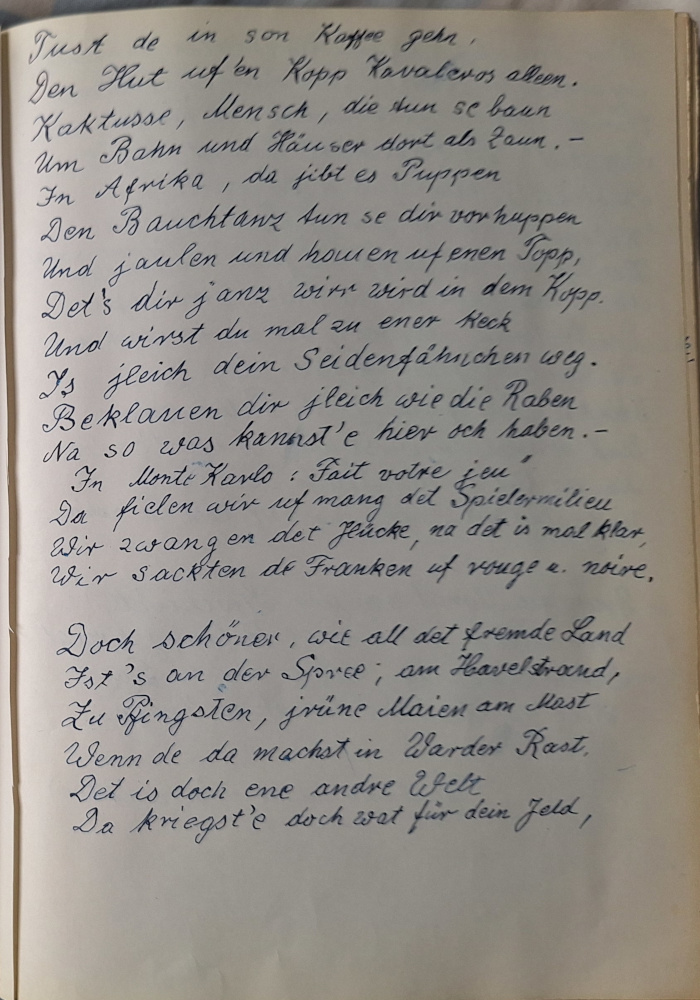 Tust de in son Kaffee gehn,
Den Hut uf'en Kopp Kavaleros alleen.
Kaktusse, Mensch, die tun se baun
Um Bahn und Häuser dort als Zaun.-
In Afrika, da jibt es Puppen
Den Bauchtanz tun se dir vorhuppen
Und jaulen und hauen uf enen Topp,
Det's dir j'anz wirr wird in dem Kopp.
Und wirst du mal zu ener keck
Is jleich dein Seidenfähnchen weg.
Beklauen dir jleich wie die Raben
Na so was kannst'e hier och haben.-
In Monte Karlo: Fait votre jeu"
Da fielen wir uf mang det Spielermilieu
Wir zwangen det Jlücke, na det is mal klar,
Wir sackten de Franken uf rouge u. noire.
Doch schöner, wie all det fremde Land
Ist's an der Spree, am Havelstrand,
Zu Pfingsten, jrüne Maien am Mast
Wenn de da machst in Warder Rast.
Det is doch ene andre Welt
Da kriegst'e doch wat für dein Jeld,